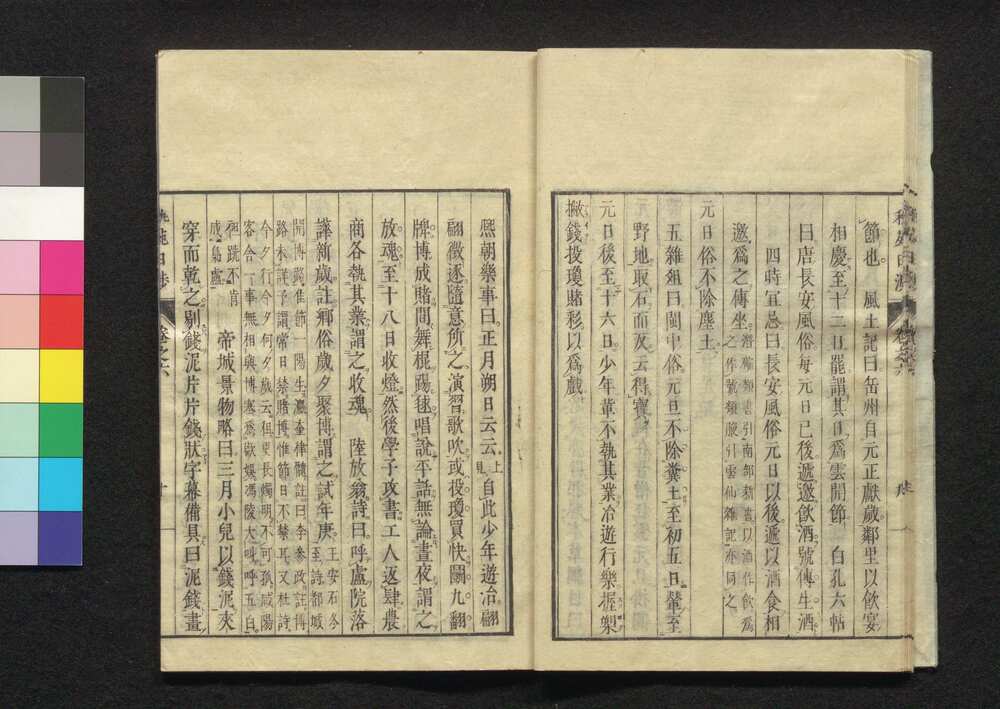 節也 風土記曰岳州自元正獻歲鄰里以飲宴
相慶至十二日罷謂其日爲雲開節 白孔六帖
曰唐長安風俗每元日已後遞邀飲酒號傳生酒
四時宜忌曰長安風俗元日以後遞以酒食相
邀爲之傳坐
潛確類書引南部新書以酒作飲爲
之作號類腋引雲仙雜記亦同之
元日俗不除塵土
五雜組曰閩中俗元旦不除糞土至初五日輦至
野地取石而反云得寶
元日後至十六日少年輩不執其業冶遊行樂握槊
攧錢投瓊賭彩以爲戲
熙朝樂事曰正月朔日云云
上
見
自此少年遊冶翩
翩徵逐隨意所之演習歌吹或投瓊買快鬬九翻
牌博成賭閒舞棍踢毬唱說平話無論晝夜謂之
放魂至十八日收燈然後學子攻書工人返肆農
商各執其業謂之收魂 陸放翁詩曰呼盧院落
譁新歲註鄉俗歲夕聚博謂之試年庚
王安石冬
至詩都城
開博
佳節一陽生瀛奎律髓註曰李參政註博
路未詳予謂常日禁賭博惟節日不禁耳又杜詩
今夕行今夕何夕歲云徂更長燭明不可孤咸陽
客舍一事無相與博塞爲歡娛馮陵大叫呼五白
袒跣不肯
成梟盧
帝城景物略曰三月小兒以錢泥夾
穿而乾之剔錢泥片片錢狀字幕備具曰泥錢畫
卷之六